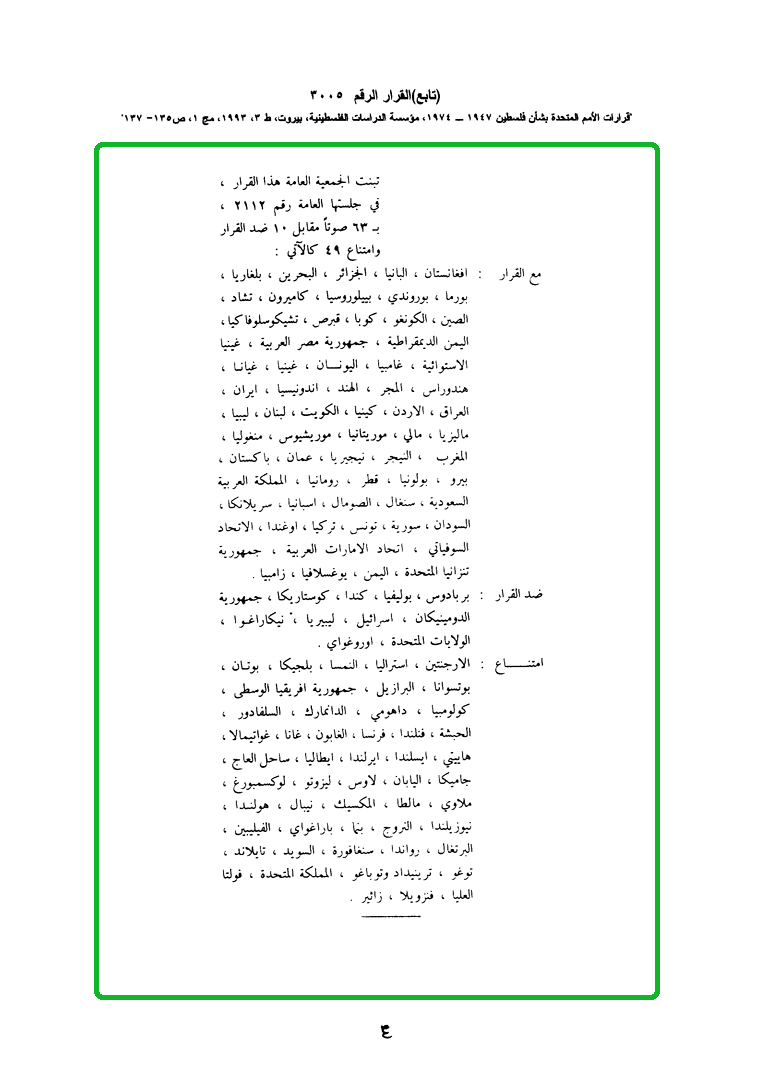 (تابع)القرار الرقم ٣٠٠٥
"قرارات الأمم المتحدة بشأن فلسطين ١٩٤٧ ــ ١٩٧٤، مؤسسة الدراسات الفلسطينية، بيروت، ط ٣، ١٩٩٣، مج ١، ص١٣٥- ١٣٧"
تبنت الجمعية العامة هذا القرار ،
في جلستها العامة رقم ٢١١٢ ،
بـ ٦٣ صوتاً مقابل ١٠ ضد القرار
وامتناع ٤٩ كالآتي :
مع القرار : افغانستان ، البانيا ، الجزائر ، البحرين ، بلغاريا ،
بورما ، بوروندي ، بييلوروسيا ، كاميرون ، تشاد ،
الصين ، الكونغو ، كوبا ، قبرص ، تشيكوسلوفاكيا ،
اليمن الديمقراطية ، جمهورية مصر العربية ، غينيا
الاستوائية ، غامبيا ، اليونــان ، غينيا ، غيانـا ،
هندوراس ، المجر ، الهند ، اندونيسيا ، ايران ،
العراق ، الاردن ، كينيا ، الكويت ، لبنان ، ليبيا ،
ماليزيا ، مالي ، موريتانيا ، موريشيوس ، منغوليا ،
المغرب ، النيجر ، نيجيريا ، عمان ، باكستان ،
بيرو ، بولونيا ، قطر ، رومانيا ، المملكة العربية
السعودية ، سنغال ، الصومال ، اسبانيا ، سريلانكا ،
السودان ، سورية ، تونس ، تركيا ، اوغندا ، الاتحاد
السوفياتي ، اتحاد الامارات العربية ، جمهورية
تنزانيا المتحدة ، اليمن ، يوغسلافيا ، زامبيا .
ضد القرار : بربادوس ، بوليفيا ، كندا ، كوستاريكا ، جمهورية
الدومينيكان ، اسرائيل ، ليبيريا ، نيكاراغـوا ،
الولايات المتحدة ، اوروغواي .
امتنـــــاع : الارجنتين ، استراليا ، النمسا ، بلجيكا ، بوتـان ،
بوتسوانا ، البرازيل ، جمهورية افريقيا الوسطى ،
كولومبيا ، داهومي ، الدانمارك ، السلفادور ،
الحبشة ، فنلندا ، فرنسا ، الغابون ، غانا ، غواتيمالا ،
هاييتي ، ايسلندا ، ايرلندا ، ايطاليا ، ساحل العاج ،
جاميكا ، اليابان ، لاوس ، ليزوتو ، لوكسمبورغ ،
ملاوي ، مالطا ، المكسيك ، نيبال ، هولنـدا ،
نيوزيلندا ، النروج ، بنما ، باراغواي ، الفيليبين ،
البرتغال ، رواندا ، سنغافورة ، السويد ، تايلاند ،
توغو ، ترينيداد وتوباغو ، المملكة المتحدة ، فولتا
العليا ، فنزويلا ، زائير .
٤